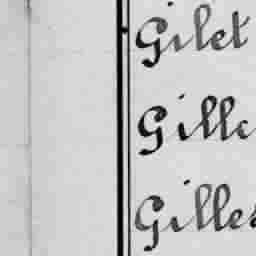 Gilet
Gille
Gilles